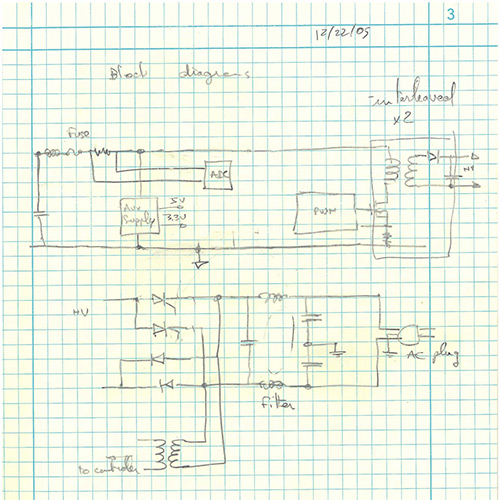 3
12/22/09
Block diagrams
-interleaved
x2
Fuse
ADC
HV
Aux
Supply
5V
3.3V
PWM
HV
AC plug
filter
to controller